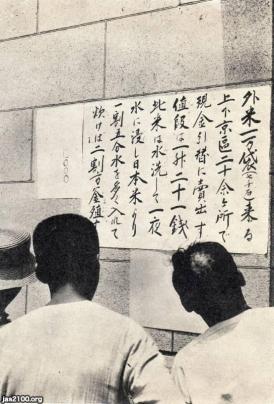 外米一万袋(七千石)来る
上下京區二十余ヶ所で
現金引替に賣出す
値段は一升二十一銭
此米は水洗して一夜
水に浸し日本米より
一割五分水を多く入れて
炊けば二割方金殖
jaa2100.org